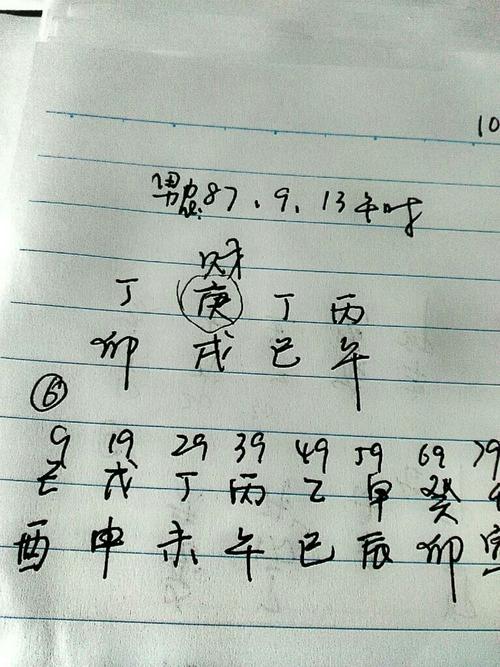 10
男 87.9.13午时
财
丁 庚 丁 丙
卯 戌 巳 午
⑥
9 19 29 39 49 59 69 79
己 戊 丁 丙 乙 甲 癸
酉 申 未 午 巳 辰 卯 寅